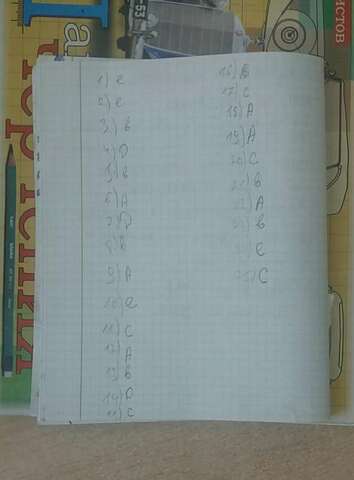 1) e
2) e
3) B
4) D
5) B
6) A
7) D
8) B
9) A
10) e
11) C
12) A
13) B
14) D
15) C
16) B
17) C
18) A
19) A
20) C
21) B
22) A
23) B
24) e
25) C
53
ИСТОВ